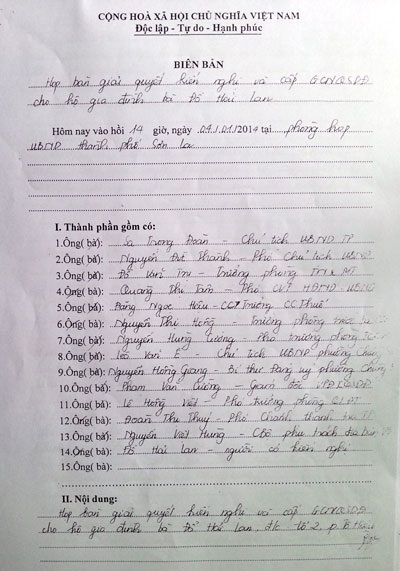 CỘNG HOÀ XÃ HỘI CHỦ NGHĨA VIỆT NAM
Độc lập - Tự do - Hạnh phúc
BIÊN BẢN
Họp bàn giải quyết kiến nghị và cấp GCNQSDĐ
cho hộ gia đình bà Đỗ Hải Lan
Hôm nay vào hồi 14 giờ, ngày 04/01/2014 tại phòng họp
UBND thành phố Sơn La
I. Thành phần gồm có:
1.Ông( bà): Trọng Đoàn - Chủ tịch UBND TP
2.Ông( bà): Nguyễn Đức Thành - Phó Chủ tịch UBND
3.Ông( bà): Đỗ Văn Trụ - Trưởng phòng TN & MT
4.Ông( bà): Quàng Thị Tâm - Phó CVP HĐND - UBND
5.Ông( bà): Đặng Ngọc Hậu - CCT Trưởng CC Thuế
6.Ông( bà): Nguyễn Thị Hồng - Trưởng phòng
7.Ông( bà): Nguyễn Hùng Cường - Phó trưởng phòng
8.Ông( bà): Văn E - Chủ tịch UBND phường Chiềng
9.Ông( bà): Nguyễn Hồng Giang - Bí thư Đảng uỷ phường Chiềng
10.Ông( bà): Phạm Văn Cường - Giám đốc VPĐKQSDĐ
11.Ông( bà): Lê Hồng Việt - Phó trưởng phòng QLĐT
12.Ông( bà): Đoàn Thị Thuý - Phó Chánh thanh tra TP
13.Ông( bà): Nguyễn Việt Hùng - CBộ phụ trách địa bàn
14.Ông( bà): Đỗ Hải Lan - người có kiến nghị
15.Ông( bà):
II. Nội dung:
Họp bàn giải quyết kiến nghị và cấp GCNQSDĐ
cho hộ gia đình bà Đỗ Hải Lan, đ/c tổ 2, p.